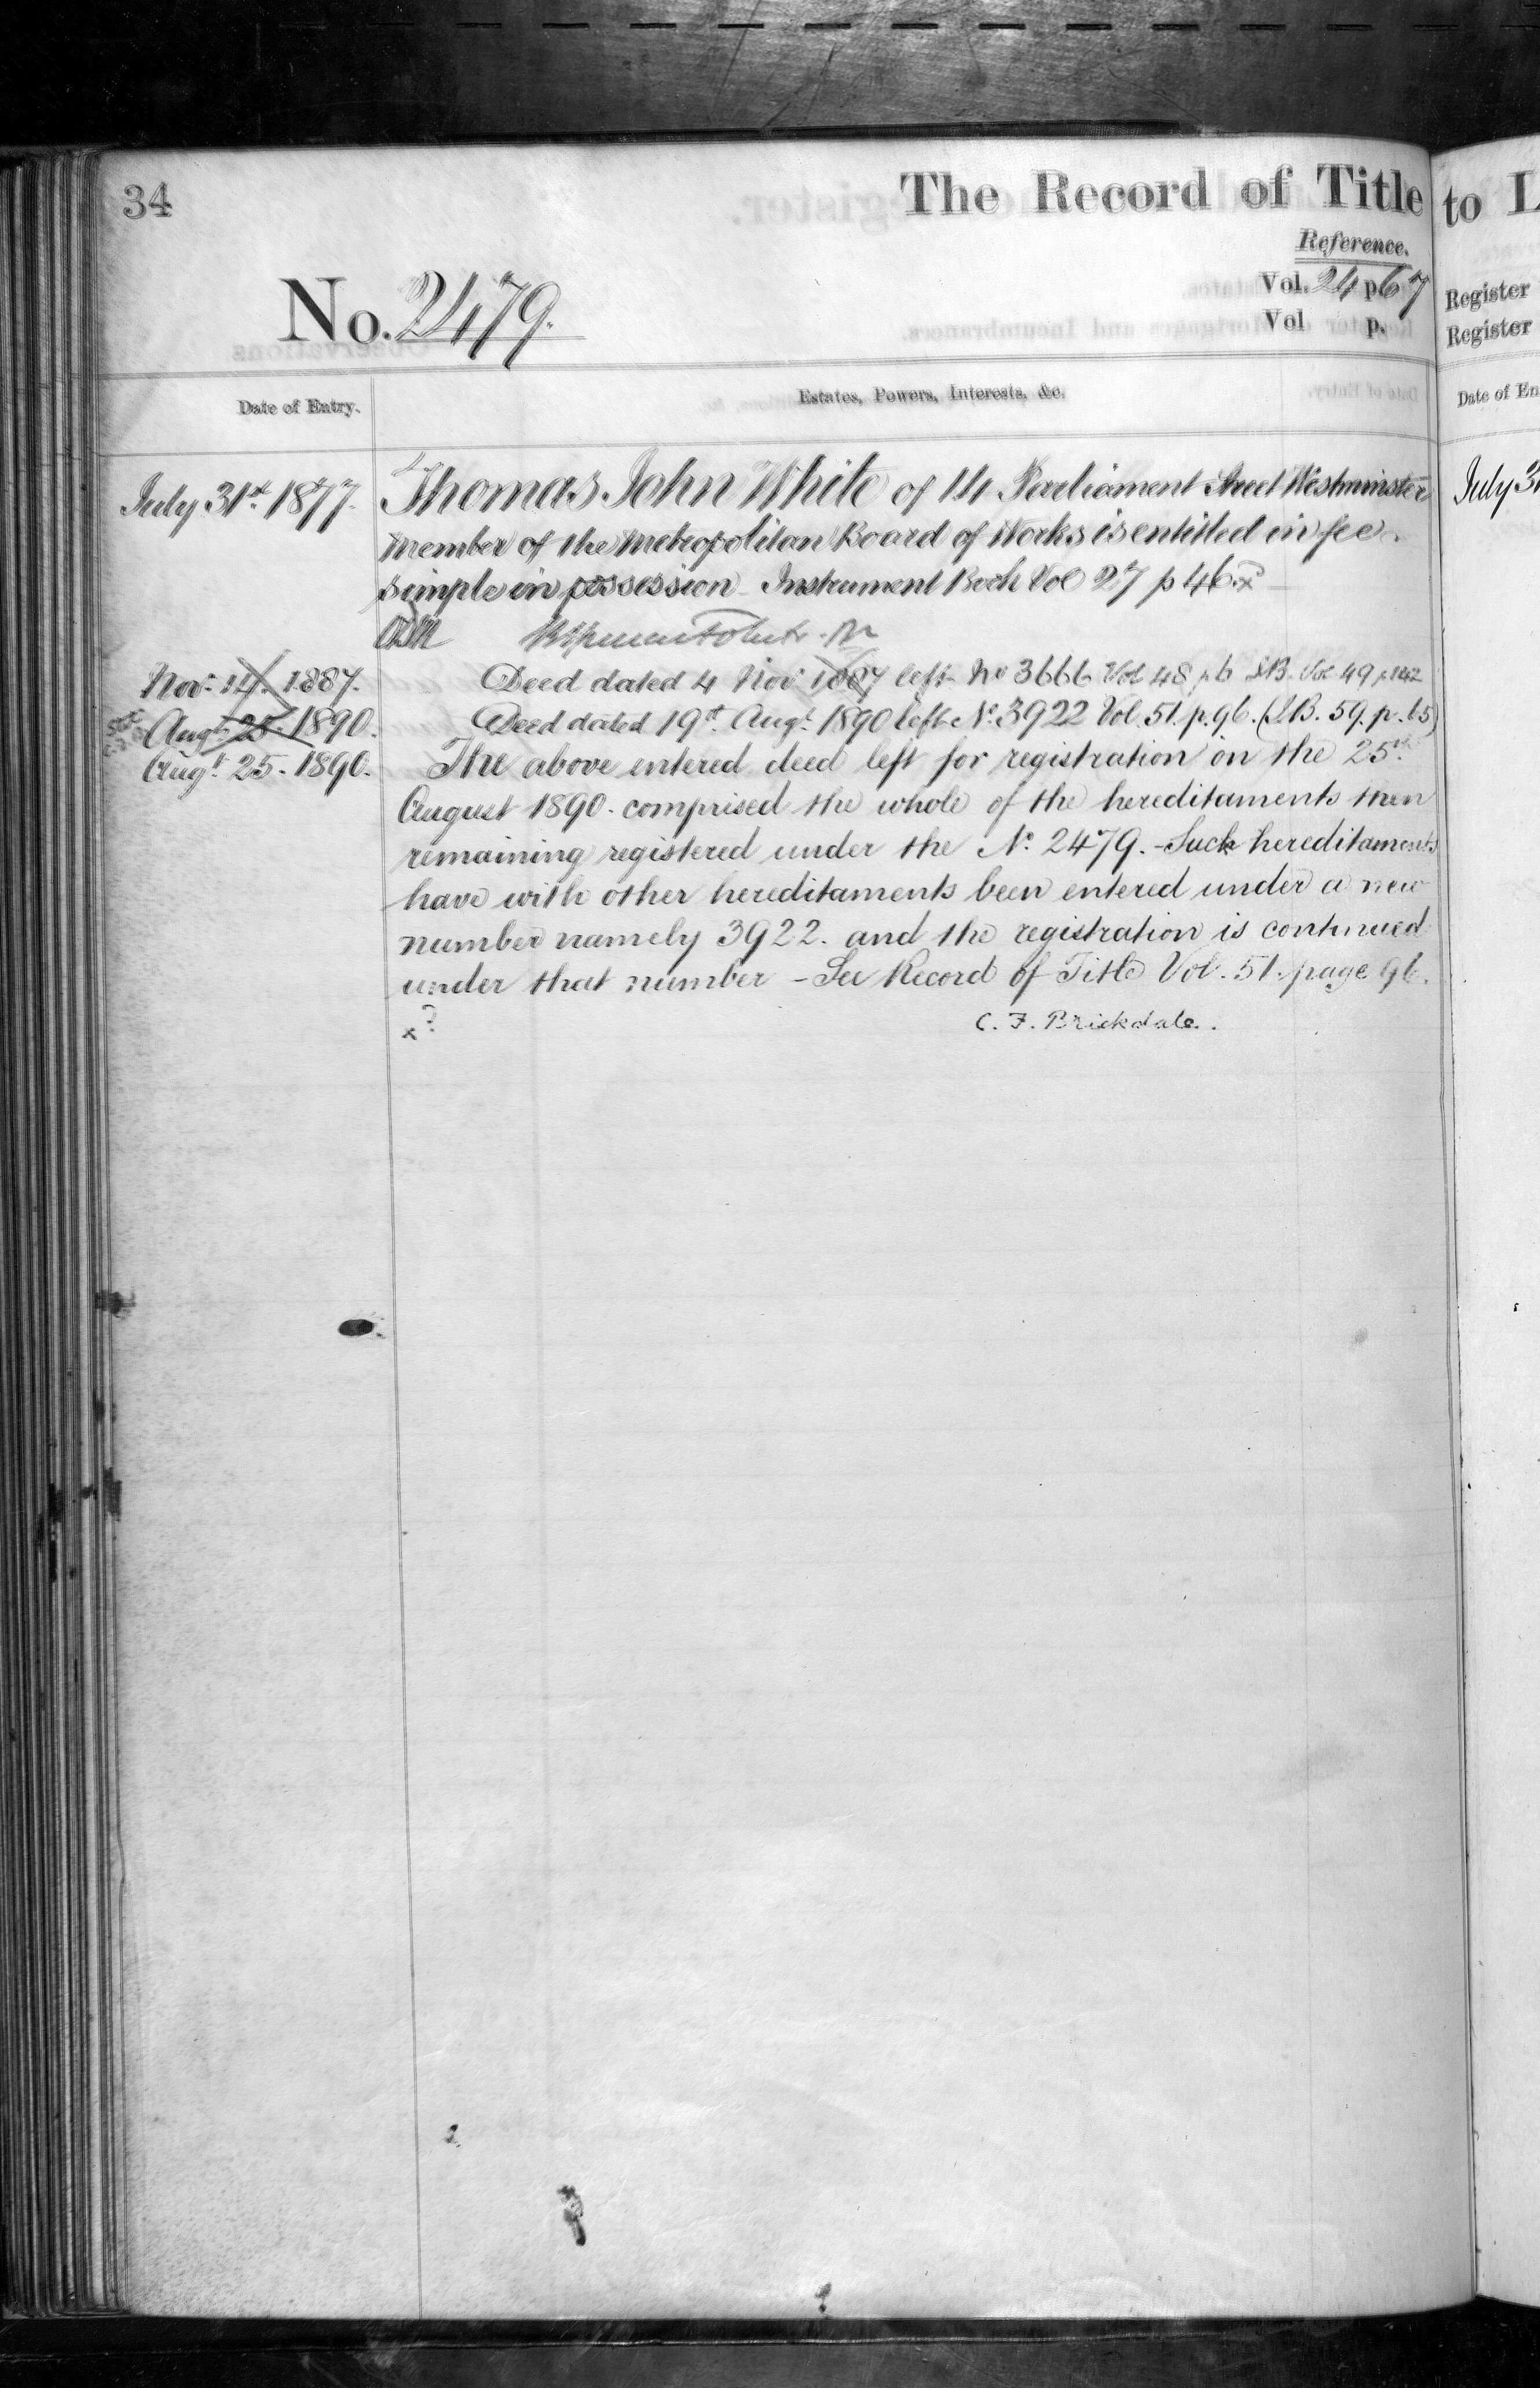 34
The Record of Title
Reference.
Vol. 24 p 67
Vol p.
No. 2479.
Date of Entry.
Estates, Powers, Interests, &c.
July 31st 1877.
Thomas John White of 14 Parliament Street Westminster
Member of the Metropolitan Board of Works is entitled in fee
simple in possession Instrument Book Vol 27 p 46
Nov. 14. 1887.
Deed dated 4 Nov 1887 left No 3666 Vol 48 p 6 I.B. Vol 49 p 142
Augt 25. 1890.
Deed dated 19th Augt 1890 left No. 3922 Vol. 51. p. 96. (I.B. 59. p. 65)
Augt 25. 1890.
The above entered deed left for registration on the 25th
August 1890. comprised the whole of the hereditaments then
remaining registered under the No. 2479. - Such hereditaments
have with other hereditaments been entered under a new
number namely 3922. and the registration is continued
under that number - See Record of Title Vol. 51. page 96.
x ?
C. F. Brickdale.
to L
Register
Register
Date of En
July 31